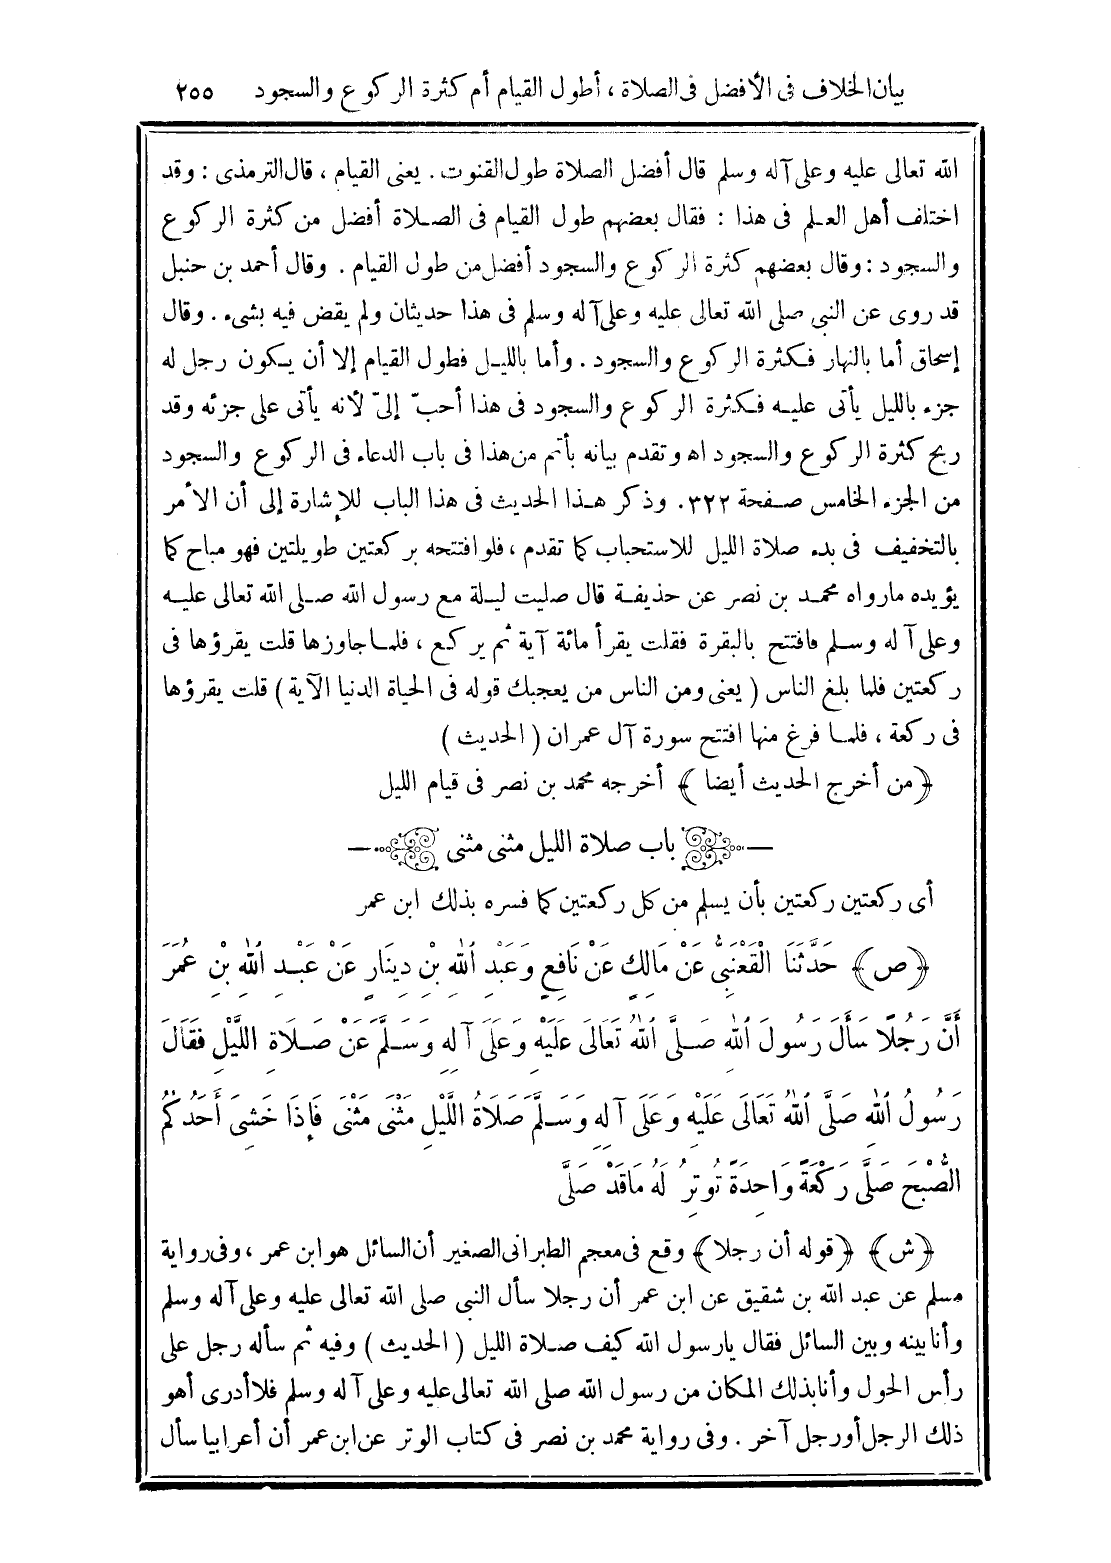 بيان الخلاف فى الأفضل فى الصلاة ، أطول القيام أم كثرة الركوع والسجود ٢٥٥
الله تعالى عليه وعلى آله وسلم قال أفضل الصلاة طول القنوت . يعنى القيام ، قال الترمذى : وقد
اختلف أهل العلم فى هذا : فقال بعضهم طول القيام فى الصلاة أفضل من كثرة الركوع
والسجود : وقال بعضهم كثرة الركوع والسجود أفضل من طول القيام . وقال أحمد بن حنبل
قد روى عن النبي صلى الله تعالى عليه وعلى آله وسلم فى هذا حديثان ولم يقض فيه بشىء . وقال
إسحاق أما بالنهار فكثرة الركوع والسجود . وأما بالليل فطول القيام إلا أن يكون رجل له
جزء بالليل يأتى عليه فكثرة الركوع والسجود فى هذا أحبّ إلىّ لأنه يأتى على جزئه وقد
ربح كثرة الركوع والسجود اه وتقدم بيانه بأتم من هذا فى باب الدعاء فى الركوع والسجود
من الجزء الخامس صفحة ٣٢٢. وذكر هذا الحديث فى هذا الباب للإشارة إلى أن الأمر
بالتخفيف فى بدء صلاة الليل للاستحباب كما تقدم ، فلو افتتحه بركعتين طويلتين فهو مباح كما
يؤيده مارواه محمد بن نصر عن حذيفة قال صليت ليلة مع رسول الله صلى الله تعالى عليه
وعلى آله وسلم فافتتح بالبقرة فقلت يقرأ مائة آية ثم يركع ، فلما جاوزها قلت يقرؤها فى
ركعتين فلما بلغ الناس ( يعنى ومن الناس من يعجبك قوله فى الحياة الدنيا الآية ) قلت يقرؤها
فى ركعة ، فلما فرغ منها افتتح سورة آل عمران ( الحديث )
﴿من أخرج الحديث أيضا ﴾ أخرجه محمد بن نصر فى قيام الليل
باب صلاة الليل مثنى مثنى
أى ركعتين ركعتين بأن يسلم من كل ركعتين كما فسره بذلك ابن عمر
﴿ص﴾ حَدَّثَنَا الْقَعْنَبِيُّ عَنْ مَالِكٍ عَنْ نَافِعٍ وَعَبْدِ اللهِ بْنِ دِينَارٍ عَنْ عَبْدِ اللهِ بْنِ عُمَرَ
أَنَّ رَجُلًا سَأَلَ رَسُولَ اللهِ صَلَّى اللهُ تَعَالَى عَلَيْهِ وَعَلَى آلِهِ وَسَلَّمَ عَنْ صَلَاةِ اللَّيْلِ فَقَالَ
رَسُولُ اللهِ صَلَّى اللهُ تَعَالَى عَلَيْهِ وَعَلَى آلِهِ وَسَلَّمَ صَلَاةُ اللَّيْلِ مَثْنَى مَثْنَى فَإِذَا خَشِىَ أَحَدُكُمُ
الصُّبْحَ صَلَّى رَكْعَةً وَاحِدَةً تُوتِرُ لَهُ مَاقَدْ صَلَّى
﴿ش﴾ ﴿قوله أن رجلا﴾ وقع فى معجم الطبرانى الصغير أن السائل هو ابن عمر ، وفى رواية
مسلم عن عبد الله بن شقيق عن ابن عمر أن رجلا سأل النبي صلى الله تعالى عليه وعلى آله وسلم
وأنا بينه وبين السائل فقال يارسول الله كيف صلاة الليل ( الحديث ) وفيه ثم سأله رجل على
رأس الحول وأنا بذلك المكان من رسول الله صلى الله تعالى عليه وعلى آله وسلم فلا أدرى أهو
ذلك الرجل أو رجل آخر . وفى رواية محمد بن نصر فى كتاب الوتر عن ابن عمر أن أعرابيا سأل